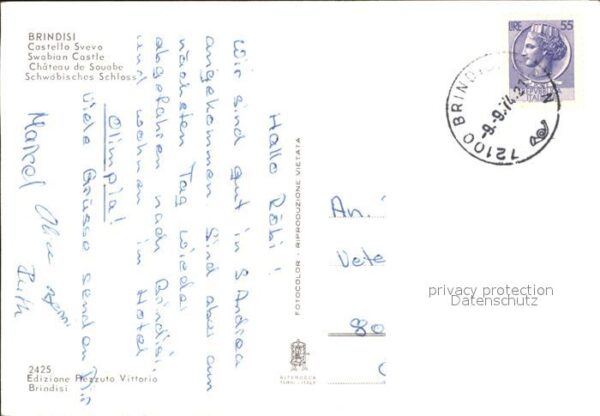 BRINDISI
Castello Svevo
Swabian Castle
Château de Souabe
Schwäbisches Schloss
Hallo Röbi!
Wir sind gut in S. Andrea
angekommen Sind aber am
nächsten Tag wieder
abgefahren nach Brindisi,
und wohnen im Hotel
Olimpia!
Viele Grüsse senden Dir
Marcel Alice
Ruth
2425
Edizione Pezzuto Vittorio
Brindisi
FOTOCOLOR - RIPRODUZIONE VIETATA
ALTEROCCA
TERNI - ITALY
LIRE 55
72100 BRINDISI
-9.-9.74.21
An
Vete
80
privacy protection
Datenschutz